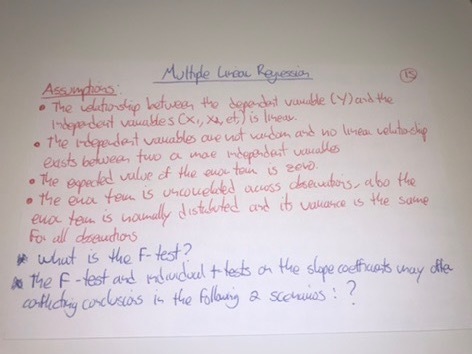 Multiple Linear Regression
15
Assumptions:
• The relationship between the dependent variable (Y) and the
independent variables (X1, X2, etc) is linear.
• The independent variables are not random and no linear relationship
exists between two or more independent variables
• The expected value of the error term is zero.
• The error term is uncorrelated across observations, also the
error term is normally distributed and its variance is the same
for all observations
* What is the F-test?
* The F-test and individual t tests on the slope coefficients may offer
conflicting conclusions in the following 2 scenarios: ?